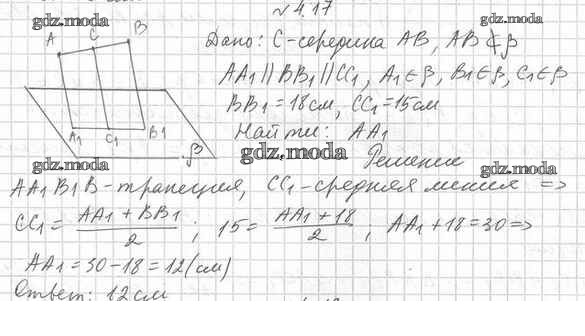 № 4.17
gdz.moda
gdz.moda
A C B
Дано: C-середина AB, AB ⊄ β
AA1 || BB1 || CC1, A1 ∈ β, B1 ∈ β, C1 ∈ β
BB1 = 18 см, CC1 = 15 см
Найти: AA1
A1 C1 B1
β
gdz.moda
gdz.moda
gdz.moda
Решение
AA1B1B - трапеция, CC1 - средняя линия =>
CC1 = (AA1 + BB1)/2 ; 15 = (AA1 + 18)/2 , AA1 + 18 = 30 =>
AA1 = 30 - 18 = 12 (см)
Ответ: 12 см